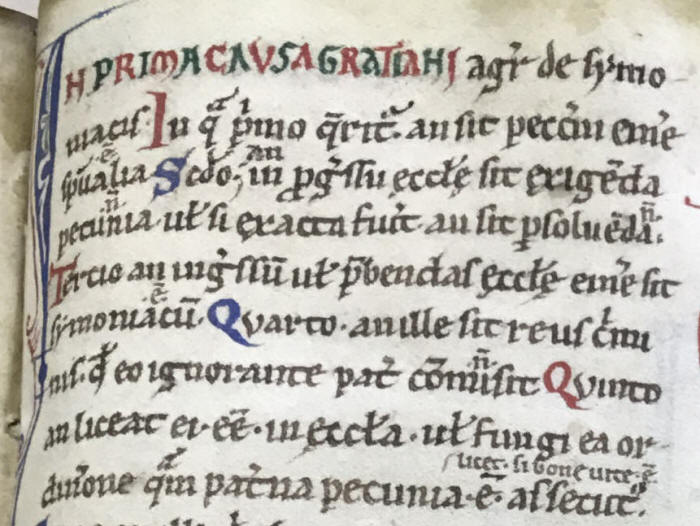 IN PRIMA CAUSA GRATIANI agit̃ de sẏmo
niacis. In q̃ p̃mo q̃rit̃. an sit pecc̃m em̃e
sp̃ualia Scd̃o, an in p̱g̃ssu ęccl̃ę sit exigẽda
pecunia. ul̃ si exacta fuit̃. an sit p̱soluẽda.
Tercio an ing̃ssũ ul̃ p̃bendas ęccl̃ę em̃e sit
sẏmoniacũ. Quarto. an ille sit reus c̃mi
nis. q̃ eo ignorante pat̃ cõmisit Quinto
an liceat ei. eẽ. in ęccl̃a. ul̃ fungi ea or
licet. si bone uite. ẽ.
dinĩone q̃m pat̃na pecunia. ẽ. assecut᷒.